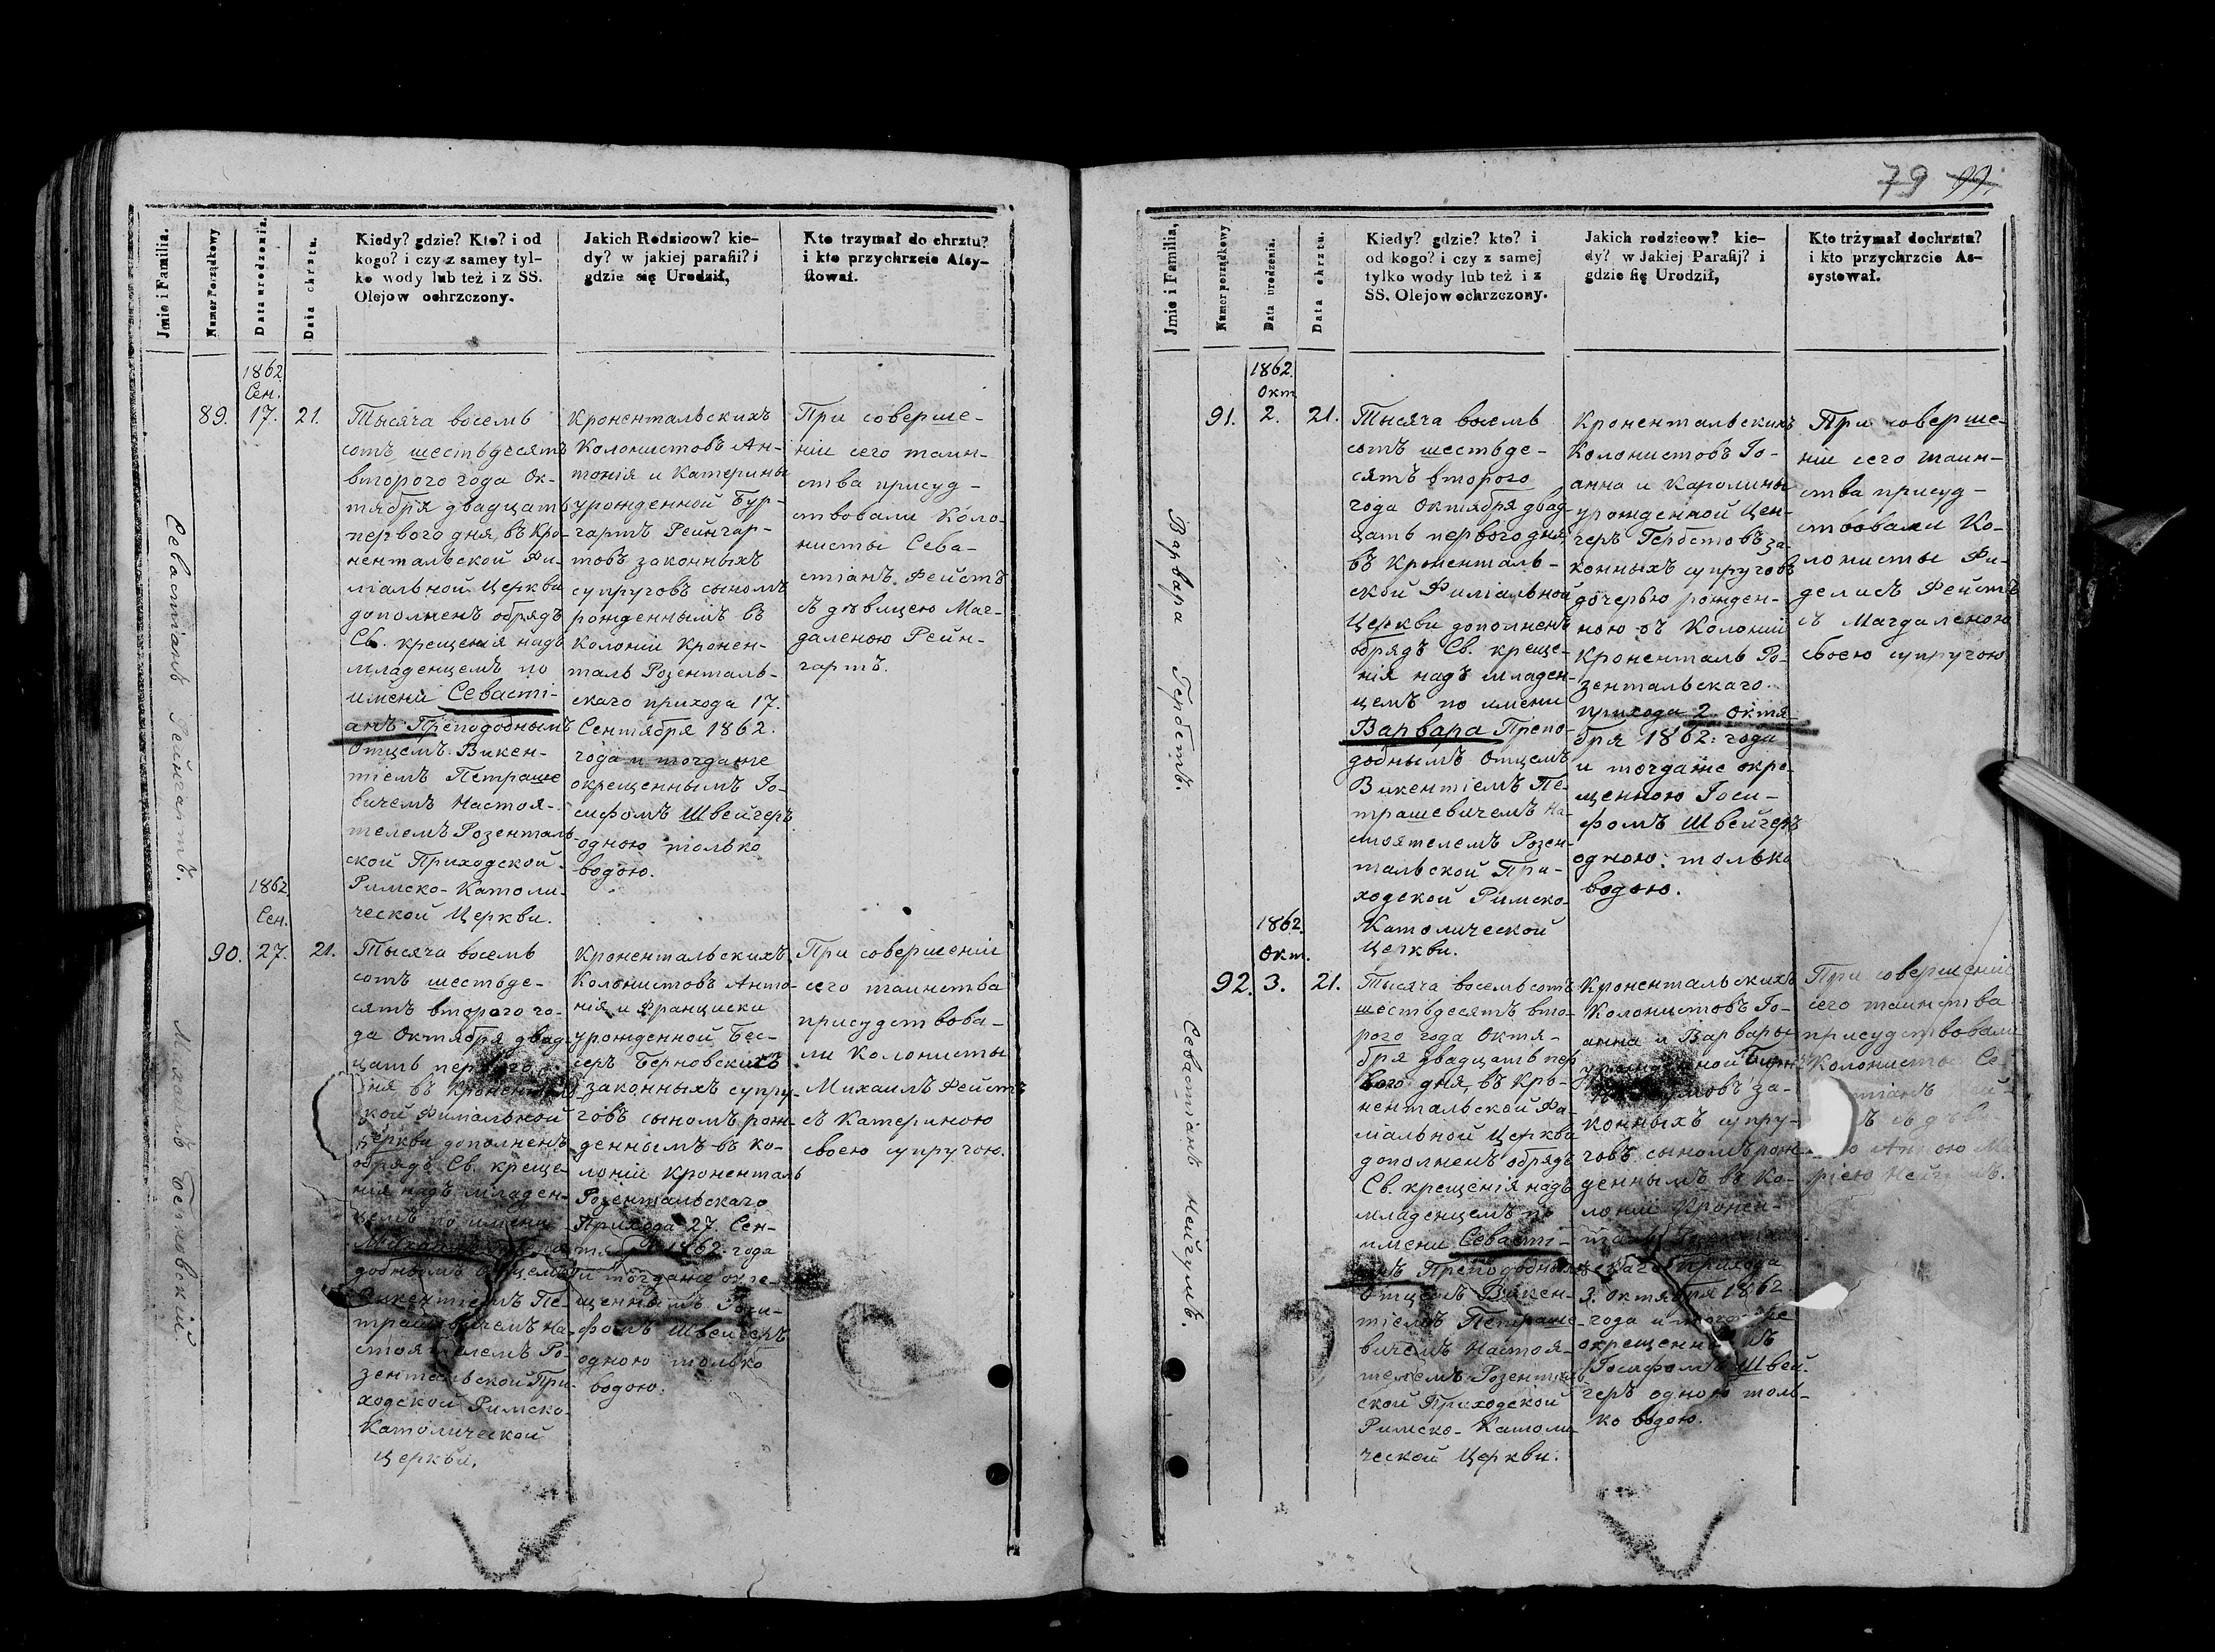 Jmie i Familia.
Numer Porządkowy
Data urodzenia.
Data chrztu.
Kiedy? gdzie? Kto? i od
kogo? i czy z samey tyl-
ko wody lub też i z SS.
Olejow ochrzczony.
Jakich Rodzicow? kie-
dy? w jakiej parafii? i
gdzie się Urodził,
Kto trzymał do chrztu?
i kto przychrzcie Assy-
stował.
1862
Сен.
89. 17. 21.
Севастіанъ Рейнгартъ.
Тысяча восемь
сотъ шестьдесятъ
втораго года Ок-
тября двадцать
перваго дня, въ Кро-
нентальской Фи-
ліальной Церкви
дополненъ обрядъ
Св. крещенія надъ
младенцемъ по
имени Севасті-
анъ Преподобнымъ
Отцемъ Викен-
тіемъ Петраше
вичемъ Настоя-
телемъ Розенталь
ской Приходской
Римско-Католи-
ческой Церкви.
Кронентальскихъ
Колонистовъ Ан-
тонія и Катерины
урожденной Бур-
гартъ Рейнгар-
товъ законныхъ
супруговъ сыномъ
рожденнымъ въ
Колоніи Кронен-
таль Розенталь-
скаго прихода 17.
Сентября 1862.
года и тогдаже
окрещеннымъ Іо-
сифомъ Швейгеръ
одною только
водою.
При соверше-
ніи сего таин-
ства присуд-
ствовали Коло-
нисты Сева-
стіанъ Фейстъ
съ дѣвицею Маг-
даленою Рейн-
гартъ.
1862
Сен.
90. 27. 21.
Михаилъ Берновскій.
Тысяча восемь
сотъ шестьде-
сятъ втораго го-
да Октября двад-
цать перваго
дня въ Кроненталь
ской Филіальной
Церкви дополненъ
обрядъ Св. креще-
нія надъ младен-
цемъ по имени
Михаилъ
добнымъ Отцемъ
Викентіемъ Пе-
трашевичемъ На-
стоятелемъ Ро-
зентальской При-
ходской Римско-
Католической
Церкви.
Кронентальскихъ
Колонистовъ Анто-
нія и Франциски
урожденной Бес-
серъ Берновскихъ
законныхъ супру-
говъ сыномъ рож-
деннымъ въ Ко-
лоніи Кроненталь
Розентальскаго
Прихода 27. Сен-
тября 1862. года
и тогдаже окре-
щеннымъ Іоси-
фомъ Швейгеръ
одною только
водою.
При совершеніи
сего таинства
присудствова-
ли Колонисты
Михаилъ Фейстъ
съ Катериною
своею супругою.
79 99.
Jmie i Familia,
Numer porządkowy
Data urodzenia.
Data chrztu.
Kiedy? gdzie? kto? i
od kogo? i czy z samej
tylko wody lub też i z
SS. Olejow ochrzczony.
Jakich rodzicow? kie-
dy? w Jakiej Parafij? i
gdzie się Urodził,
Kto trżymał dochrztu?
i kto przychrzcie As-
systował.
1862.
Окт
91. 2. 21.
Варвара Гербстъ.
Тысяча восемь
сотъ шестьде-
сятъ второго
года Октября двад-
цать первого дня,
въ Кроненталь-
ской Филіальной
Церкви дополненъ
обрядъ Св. креще-
нія надъ младен-
цемъ по имени
Варвара Препо-
добнымъ Отцемъ
Викентіемъ Пе-
трашевичемъ На-
стоятелемъ Розен-
тальской При-
ходской Римско-
Католической
Церкви.
Кронентальскихъ
Колонистовъ Іо-
анна и Каролины
урожденной Цен-
геръ Гербстовъ за-
конныхъ супруговъ
дочерью рожден-
ною въ Колоніи
Кроненталь Ро-
зентальскаго
прихода 2. Октя-
бря 1862. года
и тогдаже окре-
щенною Іоси-
фомъ Швейгеръ
одною только
водою.
При соверше-
ніи сего таин-
ства присуд-
ствовали Ко-
лонисты Фи-
делисъ Фейстъ
съ Магдаленою
своею супругою
1862.
Окт.
92. 3. 21.
Севастіанъ Нейгумъ.
Тысяча восемь сотъ
шестьдесятъ вто-
рого года Октя-
бря двадцать пер
вого дня, въ Кро-
нентальской Фи-
ліальной Церкви
дополненъ обрядъ
Св. крещенія надъ
младенцемъ по
имени Севасті-
анъ Преподобнымъ
Отцемъ Викен-
тіемъ Петраше-
вичемъ Настоя-
телемъ Розенталь
ской Приходской
Римско-Католи-
ческой Церкви.
Кронентальскихъ
Колонистовъ Іо-
анна и Варвары
урожденной
за-
конныхъ супру-
говъ сыномъ рож-
деннымъ въ Ко-
лоніи Кронен-
таль
скаго прихода
3. Октября 1862
года и тогдаже
окрещеннымъ
Іосифомъ Швей-
геръ одною толь-
ко водою.
При совершеніи
сего таинства
присудствовали
Колонисты Се-
Анною Ма-
ріею